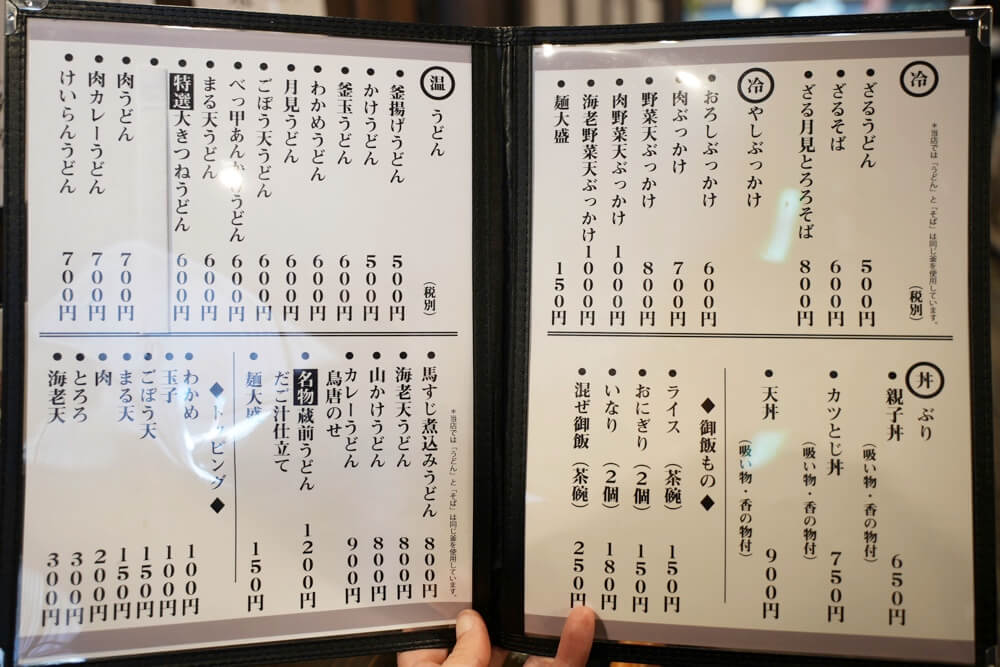 冷
＊当店では「うどん」と「そば」は同じ釜を使用しています。
（税別）
●ざるうどん 500円
●ざるそば 600円
●ざる月見とろろそば 800円
冷やしぶっかけ
●おろしぶっかけ 600円
●肉ぶっかけ 700円
●野菜天ぶっかけ 800円
●肉野菜天ぶっかけ 1000円
●海老野菜天ぶっかけ 1000円
●麺大盛 150円
丼ぶり
●親子丼 650円
（吸い物・香の物付）
●カツとじ丼 750円
（吸い物・香の物付）
●天丼 900円
（吸い物・香の物付）
◆御飯もの◆
●ライス（茶碗） 150円
●おにぎり（2個） 150円
●いなり（2個） 180円
●混ぜ御飯（茶碗） 250円
温うどん
（税別）
●釜揚げうどん 500円
●かけうどん 500円
●釜玉うどん 600円
●わかめうどん 600円
●月見うどん 600円
●ごぼう天うどん 600円
●べっ甲あんかけうどん 600円
●まる天うどん 600円
●特選大きつねうどん 600円
●
●肉うどん 700円
●肉カレーうどん 700円
●けいらんうどん 700円
＊当店では「うどん」と「そば」は同じ釜を使用しています。
●馬すじ煮込みうどん 800円
●海老天うどん 800円
●山かけうどん 800円
●カレーうどん 900円
鳥唐のせ
●名物蔵前うどん 1200円
だご汁仕立て
●麺大盛 150円
◆トッピング◆
●わかめ 100円
●玉子 100円
●ごぼう天 150円
●まる天 150円
●肉 200円
●とろろ 300円
●海老天 300円